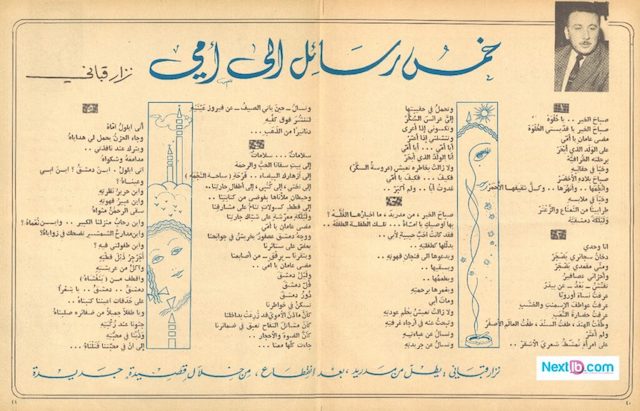 خمس رسائل إلى أمي
نزار قباني
صباح الخير .. يا حلوة
صباح الخير يا قديستي الحلوة
مضى عامان يا أمي
على الولد الذي أبحر
برحلته الخرافية
وخبأ في حقائبه
صباح بلاده الأخضر
وأنجمها .. وأنهرها .. وكل شقيقها الأحمر
وخبأ في ملابسه
طرابينا من النعناع والزعتر
وليلكة دمشقية
أنا وحدي
دخان سجائري يضجر
ومني مقعدي يضجر
وأحزاني عصافير
تفتش .. بعد .. عن بيدر
عرفت نساء أوروبا
عرفت عواطف الإسمنت والخشب
عرفت حضارة التعب
وطفت الهند ، طفت السند ، طفت العالم الأصفر
ولم أعثر
على امرأة تمشط شعري الأشقر ..
وتحمل في حقيبتها
إلي عرائس السكر
وتكسوني إذا أعرى
وتنشلني إذا أعثر
أيا أمي .. أيا أمي
أنا الولد الذي أبحر
ولا زالت بخاطره تعيش (عروسة السكر)
فكيف .. فكيف يا أمي
غدوت أبا .. ولم أكبر ..
صباح الخير ، من مدريد ، ما أخبارها الفلة ؟
بها أوصيك يا أماه .. تلك الطفلة الطفلة
فقد كانت أحب حبيبة لأبي ..
يدللها كطفلته ..
ويدعوها إلى فنجان قهوته ..
ويسقيها ..
ويطعمها ..
ويغمرها برحمته
ومات أبي
ولا زالت تعيش بحلم عودته
وتبحث عنه في أرجاء غرفته
وتسأل عن عباءته
وتسأل عن جريدته
وتسأل ـ حين يأتي الصيف ـ عن فيروز عينيه
لتنثر فوق كفيه
دنانيرا من الذهب ..
سلامات .. سلامات
إلى بيت سقانا الحب والرحمة
إلى أزهارك البيضاء .. فرحة (ساحة النجمة)
إلى تختي ، إلى كتبي ، إلى أطفال حارتنا ..
وحيطان ملأناها بفوضى من كتابتنا ..
إلى قطط كسولات تنام على مشارفنا
وليلكة معرشة على شباك جارتنا
مضى عامان يا أمي
ووجه دمشق عصفور يخربش في جوانحنا
يعض على ستائرنا
وينقرنا ـ برفق ـ من أصابعنا
مضى عامان يا أمي
وليل دمشق
فل دمشق
دور دمشق
تسكن في خواطرنا
كأن مآذن الأموي قد زرعت بداخلنا
كأن مشاتل التفاح تعبق في ضمائرنا
كأن الضوء والأحجار ..
جاءت كلها معنا ..
أتى أيلول أماه
وجاء الحزن يحمل لي هداياه
ويترك عند نافذتي ..
مدامعه وشكواه
أتى أيلول . أين دمشق ؟ أين أبي
وعيناه ؟
وأين حرير نظرته
وأين عبير قهوته
سقى الرحمن مثواه
وأين رحاب منزلنا الكبير .. وأين نعماه ؟
وأين مدارج الشمشير تضحك في زواياه
وأين طفولتي فيه ؟
أجرجر ذيل قطته
وآكل من عريشته
وأقطف من (بنفشاه)
دمشق .. دمشق .. يا شعرا
على حدقات أعيننا كتبناه ..
ويا طفلا جميلا من ضفائره صلبناه
جثونا عند ركبته
وذبنا في محبته
إلى أن في محبتنا قتلناه ...
نزار قباني : يطل من مدريد ، بعد انقطاع ، من خلال قصيدة جديدة
Nextlb.com